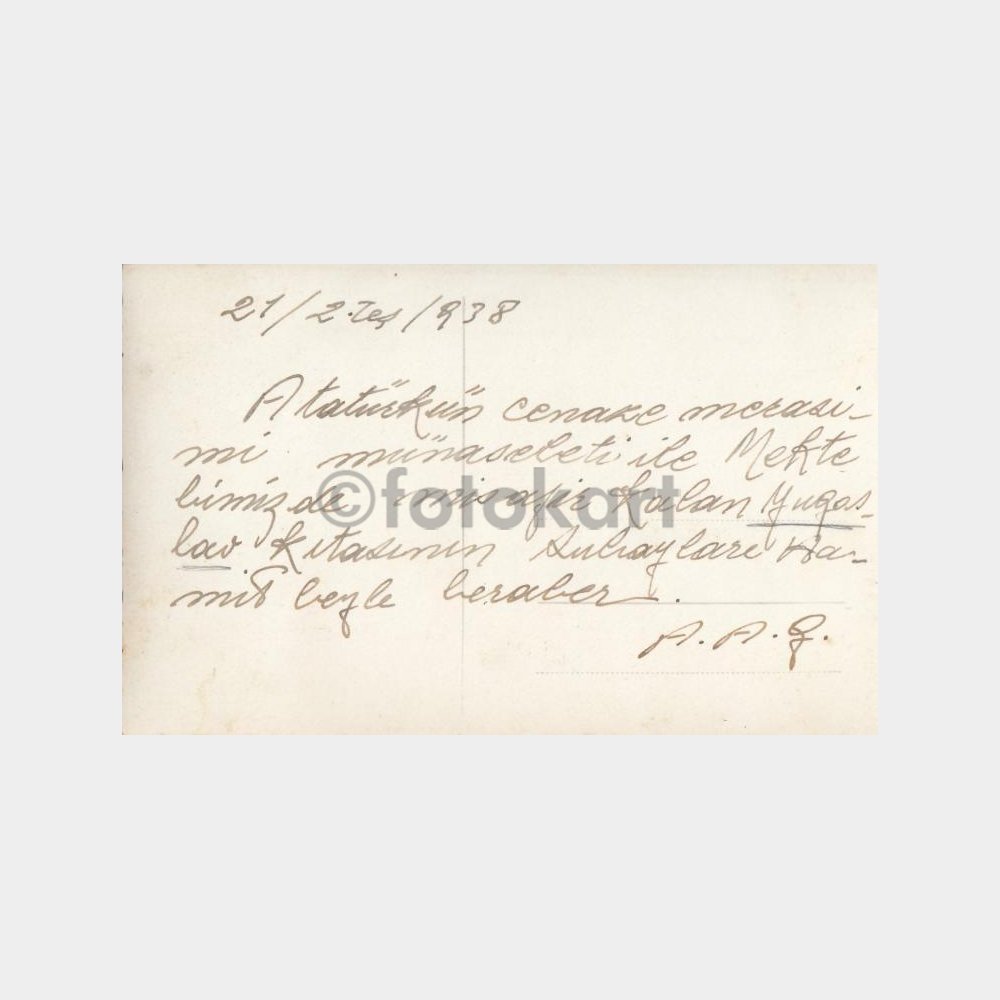 21/2.teş/938
Atatürkün cenaze merasi-
mi münasebeti ile Mekte
bimizde misafir kalan Yugos-
lav kıtasının Subayları Ha-
mit beyle beraber.
A. A. G.
©fotokart